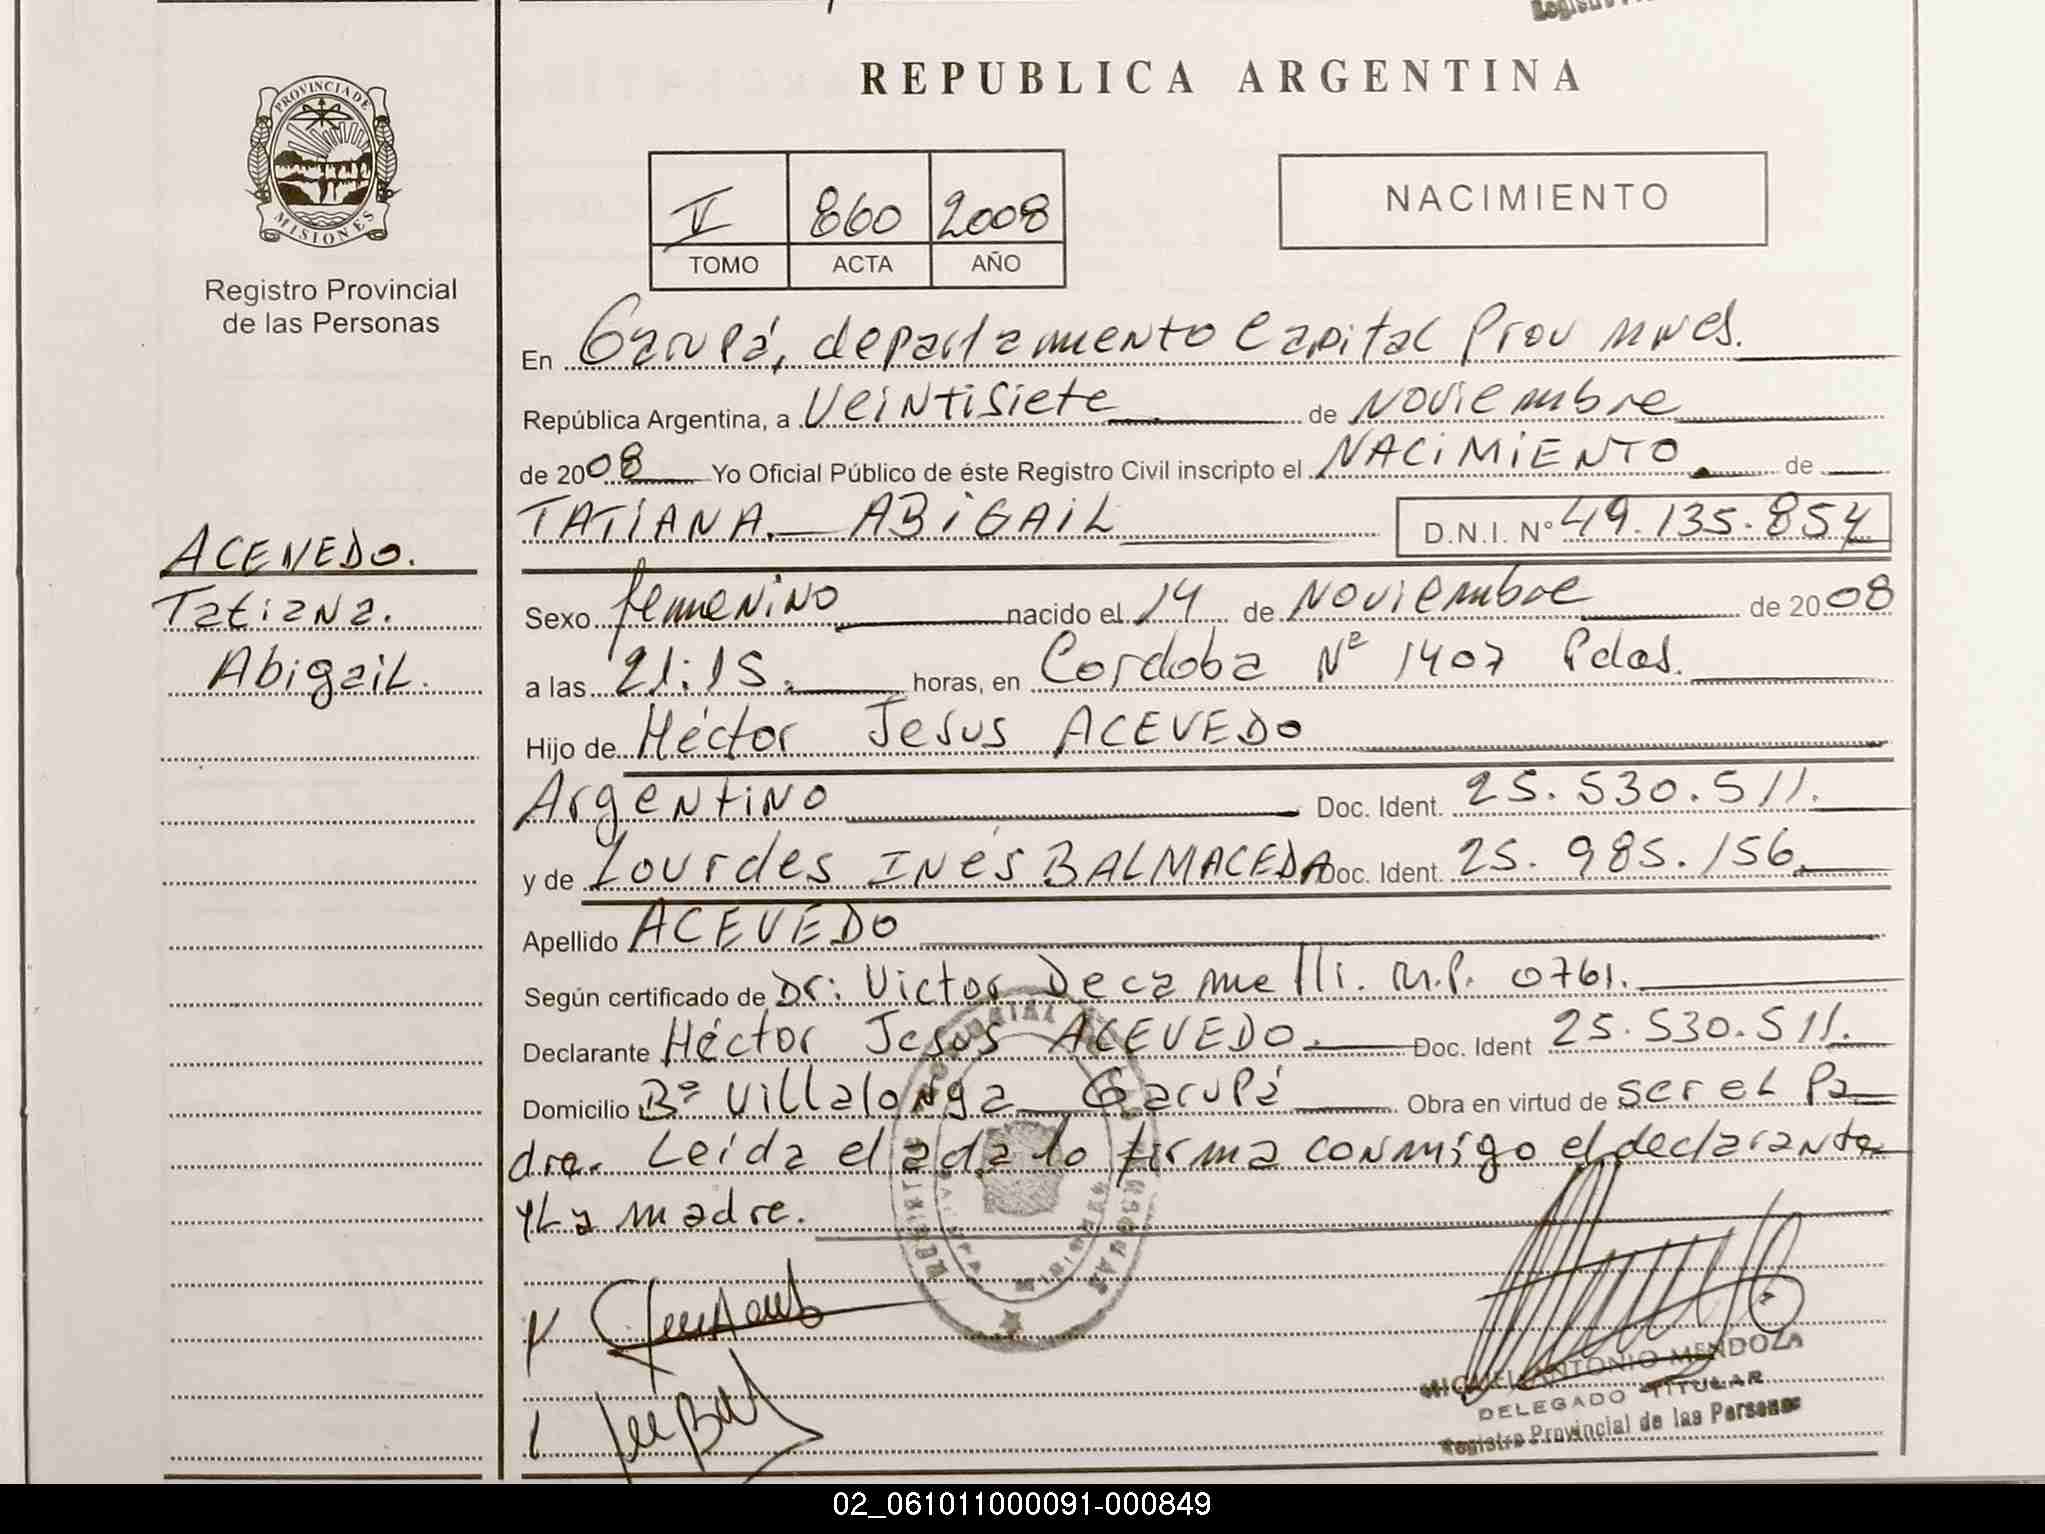 REPUBLICA ARGENTINA
PROVINCIA DE
MISIONES
Registro Provincial
de las Personas
V 860 2008
TOMO ACTA AÑO
NACIMIENTO
En Garupá, departamento Capital Prov Mnes.
República Argentina, a Veintisiete de Noviembre
de 2008 Yo Oficial Público de éste Registro Civil inscripto el NACIMIENTO de
TATIANA ABIGAIL D.N.I. Nº 49.135.854
ACEVEDO.
Tatiana.
Abigail.
Sexo femenino nacido el 14 de Noviembre de 2008
a las 21:15. horas, en Cordoba Nº 1407 Pdas.
Hijo de Héctor Jesus ACEVEDO
Argentino Doc. Ident. 25.530.511.
y de Lourdes INés BALMACEDA Doc. Ident. 25.985.156.
Apellido ACEVEDO
Según certificado de Dr: Victor Decamelli. M.P. 0761.
Declarante Héctor Jesus ACEVEDO. Doc. Ident 25.530.511.
Domicilio Bº Villalonga Garupá Obra en virtud de ser el Pa
dre. Leida el acta lo firma conmigo el declarante
y La madre.
MIGUEL ANTONIO MENDOZA
DELEGADO TITULAR
Registro Provincial de las Personas
02_061011000091-000849